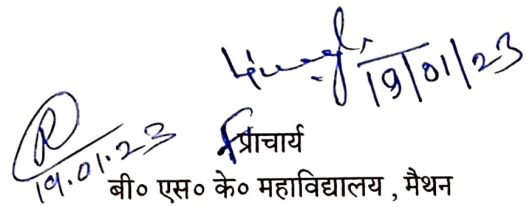 19/01/23
R
19.01.23
प्राचार्य
बी० एस० के० महाविद्यालय , मैथन